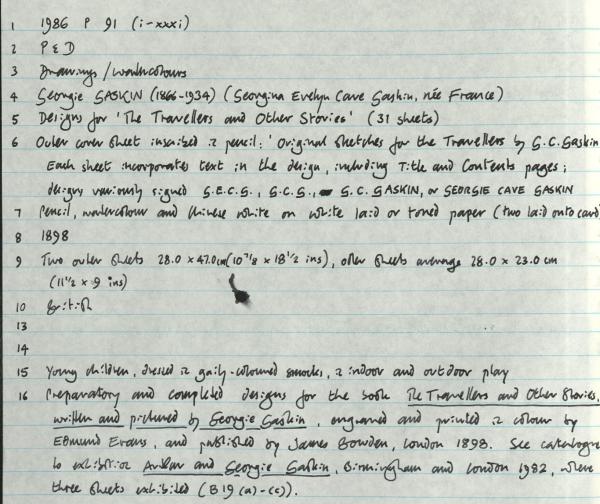 1 1986 P 91 (i-xxxi)
2 P & D
3 Drawings / watercolours
4 Georgie GASKIN (1866-1934) (Georgina Evelyn Cave Gaskin, née France)
5 Designs for 'The Travellers and Other Stories' (31 sheets)
6 Outer cover sheet inscribed in pencil: 'Original sketches for the Travellers by G.C. Gaskin
Each sheet incorporates text in the design, including Title and Contents pages;
designs variously signed G.E.C.G., G.C.G., G.C. GASKIN, or GEORGIE CAVE GASKIN
7 Pencil, watercolour and Chinese white on white laid or toned paper (two laid onto card)
8 1898
9 Two outer sheets 28.0 x 47.0 cm (10 7/8 x 18 1/2 ins), other sheets average 28.0 x 23.0 cm
(11 1/2 x 9 ins)
10 British
13
14
15 Young children, dressed in gaily-coloured smocks, in indoor and outdoor play
16 Preparatory and completed designs for the book The Travellers and Other Stories,
written and pictured by Georgie Gaskin, engraved and printed in colour by
Edmund Evans, and published by James Bowden, London 1898. See catalogue
to exhibition Arthur and Georgie Gaskin, Birmingham and London 1982, where
three sheets exhibited (B19 (a)-(c)).